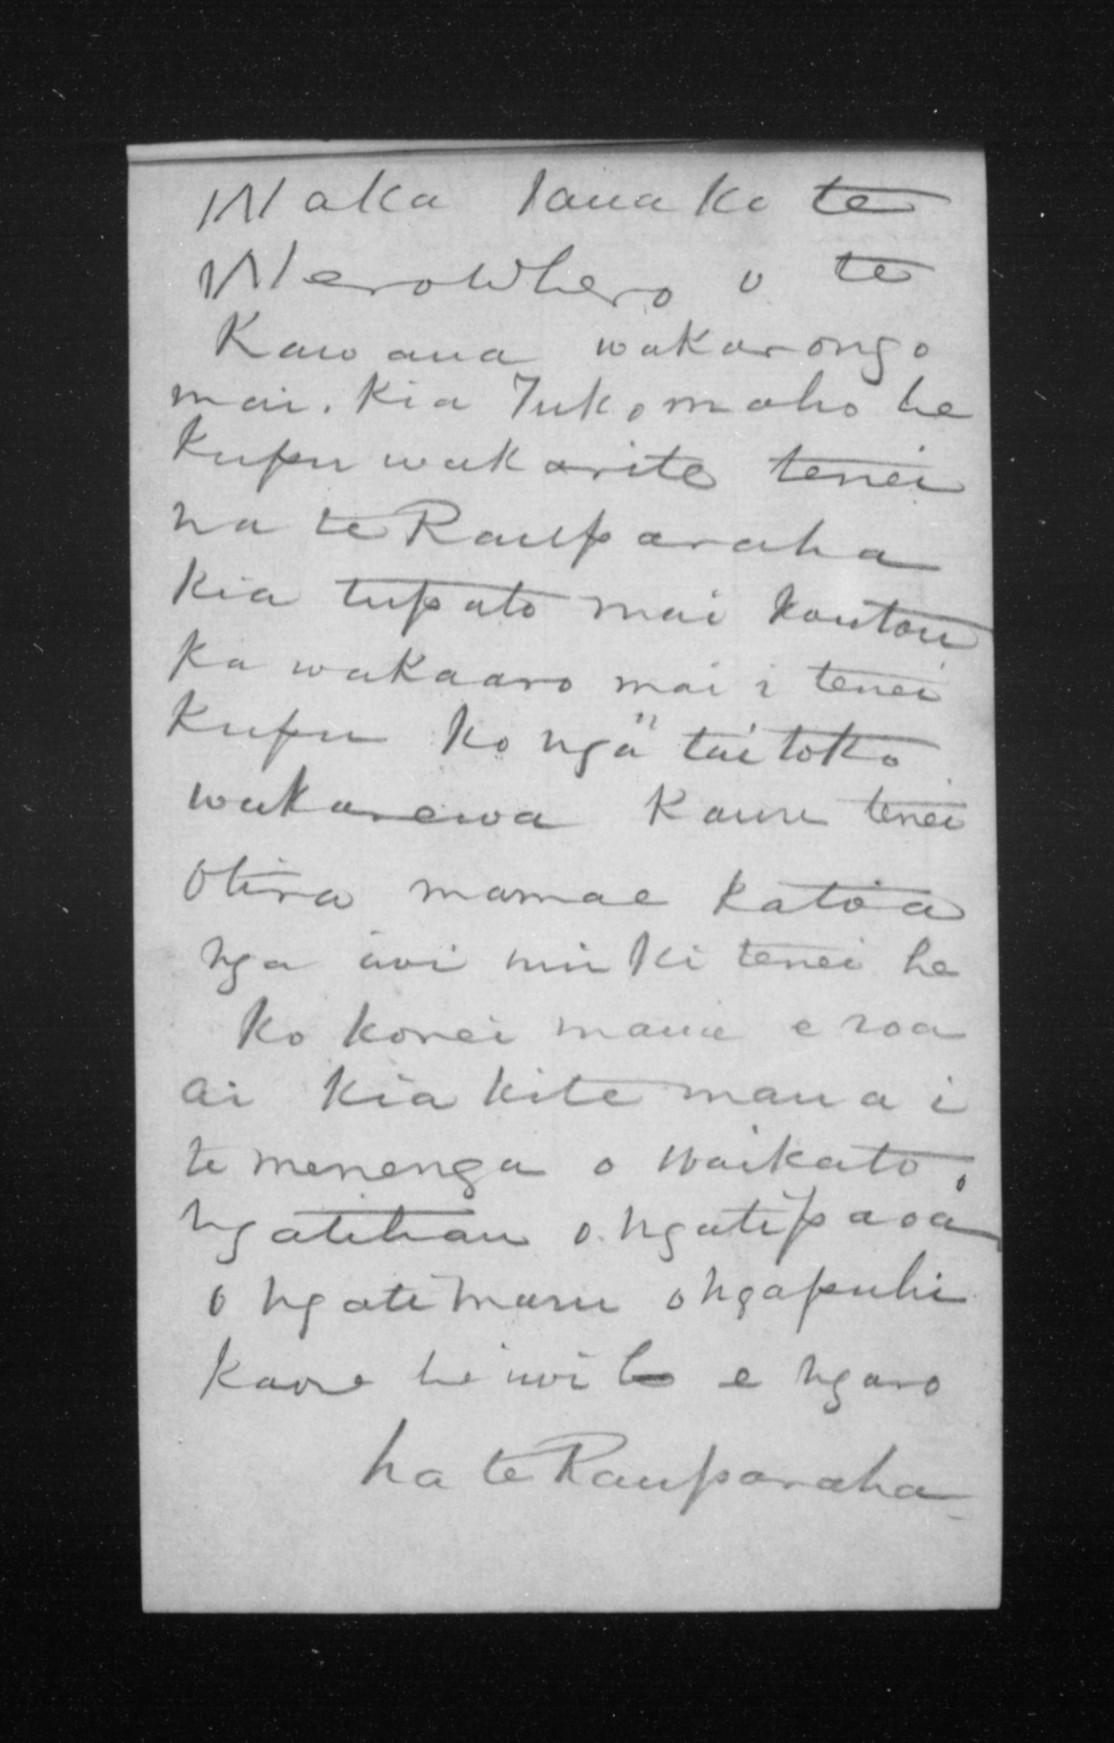 Waka raua ko te
Werowhero o te
Kawana wakarongo
mai. Kia Tukomoho he
kupu wakarite tenei
na te Rauparaha
kia tupato mai koutou
ka wakaaro mai i tenei
kupu ko nga tai toko
wakarewa kauru tenei
Otira mamae katoa
nga iwi nui ki tenei he
ko konei maua e roa
ai kia kite maua i
te menenga o Waikato o
ngatihau o ngatipaoa
o ngatimaru o ngapuhi
kaore he iwi e ngaro
na te Rauparaha